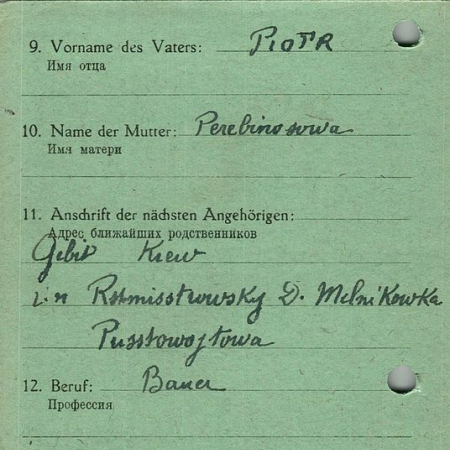 9. Vorname des Vaters: Piotr
Имя отца
10. Name der Mutter: Perebinosowa
Имя матери
11. Anschrift der nächsten Angehörigen:
Адрес ближайших родственников
Gebit Kiew
Rotmisstrowsky D. Melnikowka
Pusstowojtowa
12. Beruf: Bauer
Профессия